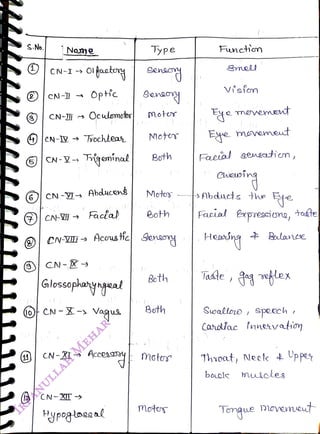 S.No. Name Type Function
① CN-I → Olfactory Sensory Smell
② CN-II → Optic Sensory Vision
③ CN-III → Oculomotor Motor Eye movement
④ CN-IV → Trochlear Motor Eye movement
⑤ CN-V → Trigeminal Both Facial sensation,
Chewing
⑥ CN-VI → Abducens Motor → Abducts the Eye
⑦ CN-VII → Facial Both Facial Expressions, taste
⑧ CN-VIII → Acoustic Sensory Hearing & Balance
⑨ CN-IX →
Glossopharyngeal Both Taste, gag reflex
⑩ CN-X → Vagus Both Swallow, speech,
Cardiac innervation
⑪ CN-XI → Accessory Motor Throat, Neck & Upper
back muscles
⑫ CN-XII →
Hypoglossal Motor Tongue movement
IRFANULLAH MEHAR